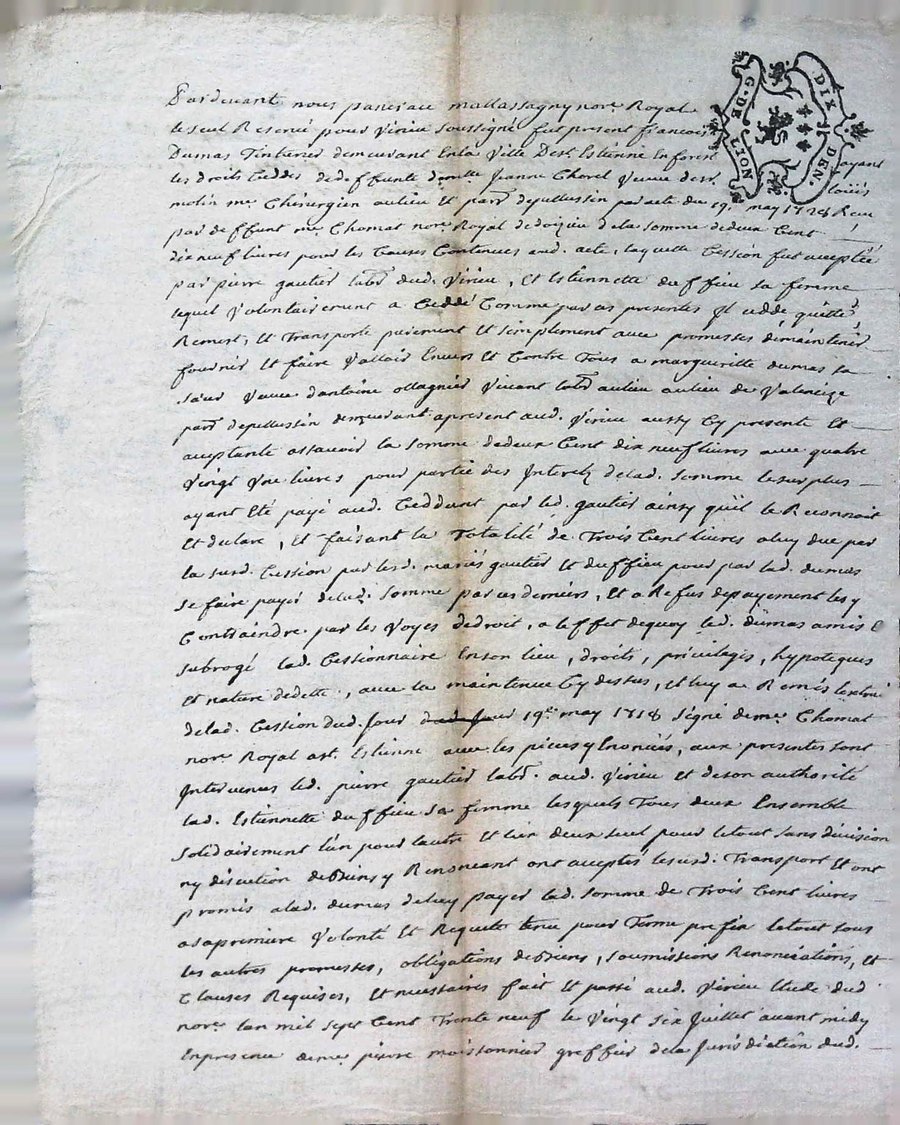 Pardevant nous pancrace mallassagny nore Royal
le seul Reservé pour Virieu soussigné fut present francois
G. DE LION
DIX DEN.
Dumas Tinturier demeurant En la Ville De st. Estienne En forest ayant
les droits Ceddés de deffunte demlle Jeanne Chorel Veuve de sr. Loüis
molin me Chirurgien au lieu et parr depellussin par acte du 19. may 1728 Receu
par deffunt me. Chomat nore Royal de la somme de deux Cent
dix neuf livres pour les Causes Contenues aud. acte, laquelle Cession fut acceptée
par pierre gautier labr dud. Virieu, Et Estiennette duffieu sa femme
lequel Volontairement a Ceddé Comme par ces presentes Il cedde quitte
Remest, et Transporte purement Et simplement avec promesses de maintenir
fournir Et faire Valloir Envers Et Contre Tous a margueritte dumas sa
sœur Veuve d'antoine ollagnier Vivant labr au lieu au lieu de Valencize
parr depellussin demeurant apresent aud. Virieu aussy Cy presente Et
acceptante assavoir la somme de deux Cent dix neuf livres avec quatre
Vingt Une livres pour partie des Interetz de lad. somme le surplus
ayant Eté payé aud. Ceddant par led. gautier ainsy qu'il le Reconnoit
Et declare, Et faisant la Totalité de Trois Cent livres a luy due par
la susd. Cession par lesd. mariés gautier Et duffieu pour par lad. dumas
se faire payer de lad. somme par ces derniers, Et a Refus de payement les y
Contraindre par les Voyes de droit, a leffet de quoy led. dumas a mis Et
subrogé lad. Cessionnaire En son lieu, droits, privileges, hypoteques
Et nature de dette, avec la maintenue Cy dessus, Et luy a Remis
de lad. Cession dud. Jour 19e. may 1728 signé de me Chomat
nore Royal a st. Estienne avec les pieces y Enoncées, aux presentes sont
Intervenus led. pierre gautier labr. aud. Virieu Et de son authorité
lad. Estiennette duffieu sa femme lesquels Tous deux Ensemble
solidairement l'un pour l'autre Et l'un deux seul pour le tout sans division
ny discution de Biens y Renonceant ont acceptés le susd. Transport Et ont
promis a lad. dumas de luy payer lad. somme de Trois Cent livres
a sa premiere Volonté Et Requete tenu pour Terme prefix le tout sous
les autres promesses, obligations de Biens, soumissions Renonciations, Et
Clauses Requises, Et necessaires fait Et passé aud. Virieu Etude dud
nore lan mil sept Cent Trente neuf le Vingt six Juillet avant midy
En presence de me pierre moissonnier greffier de la Jurisdiction dud.